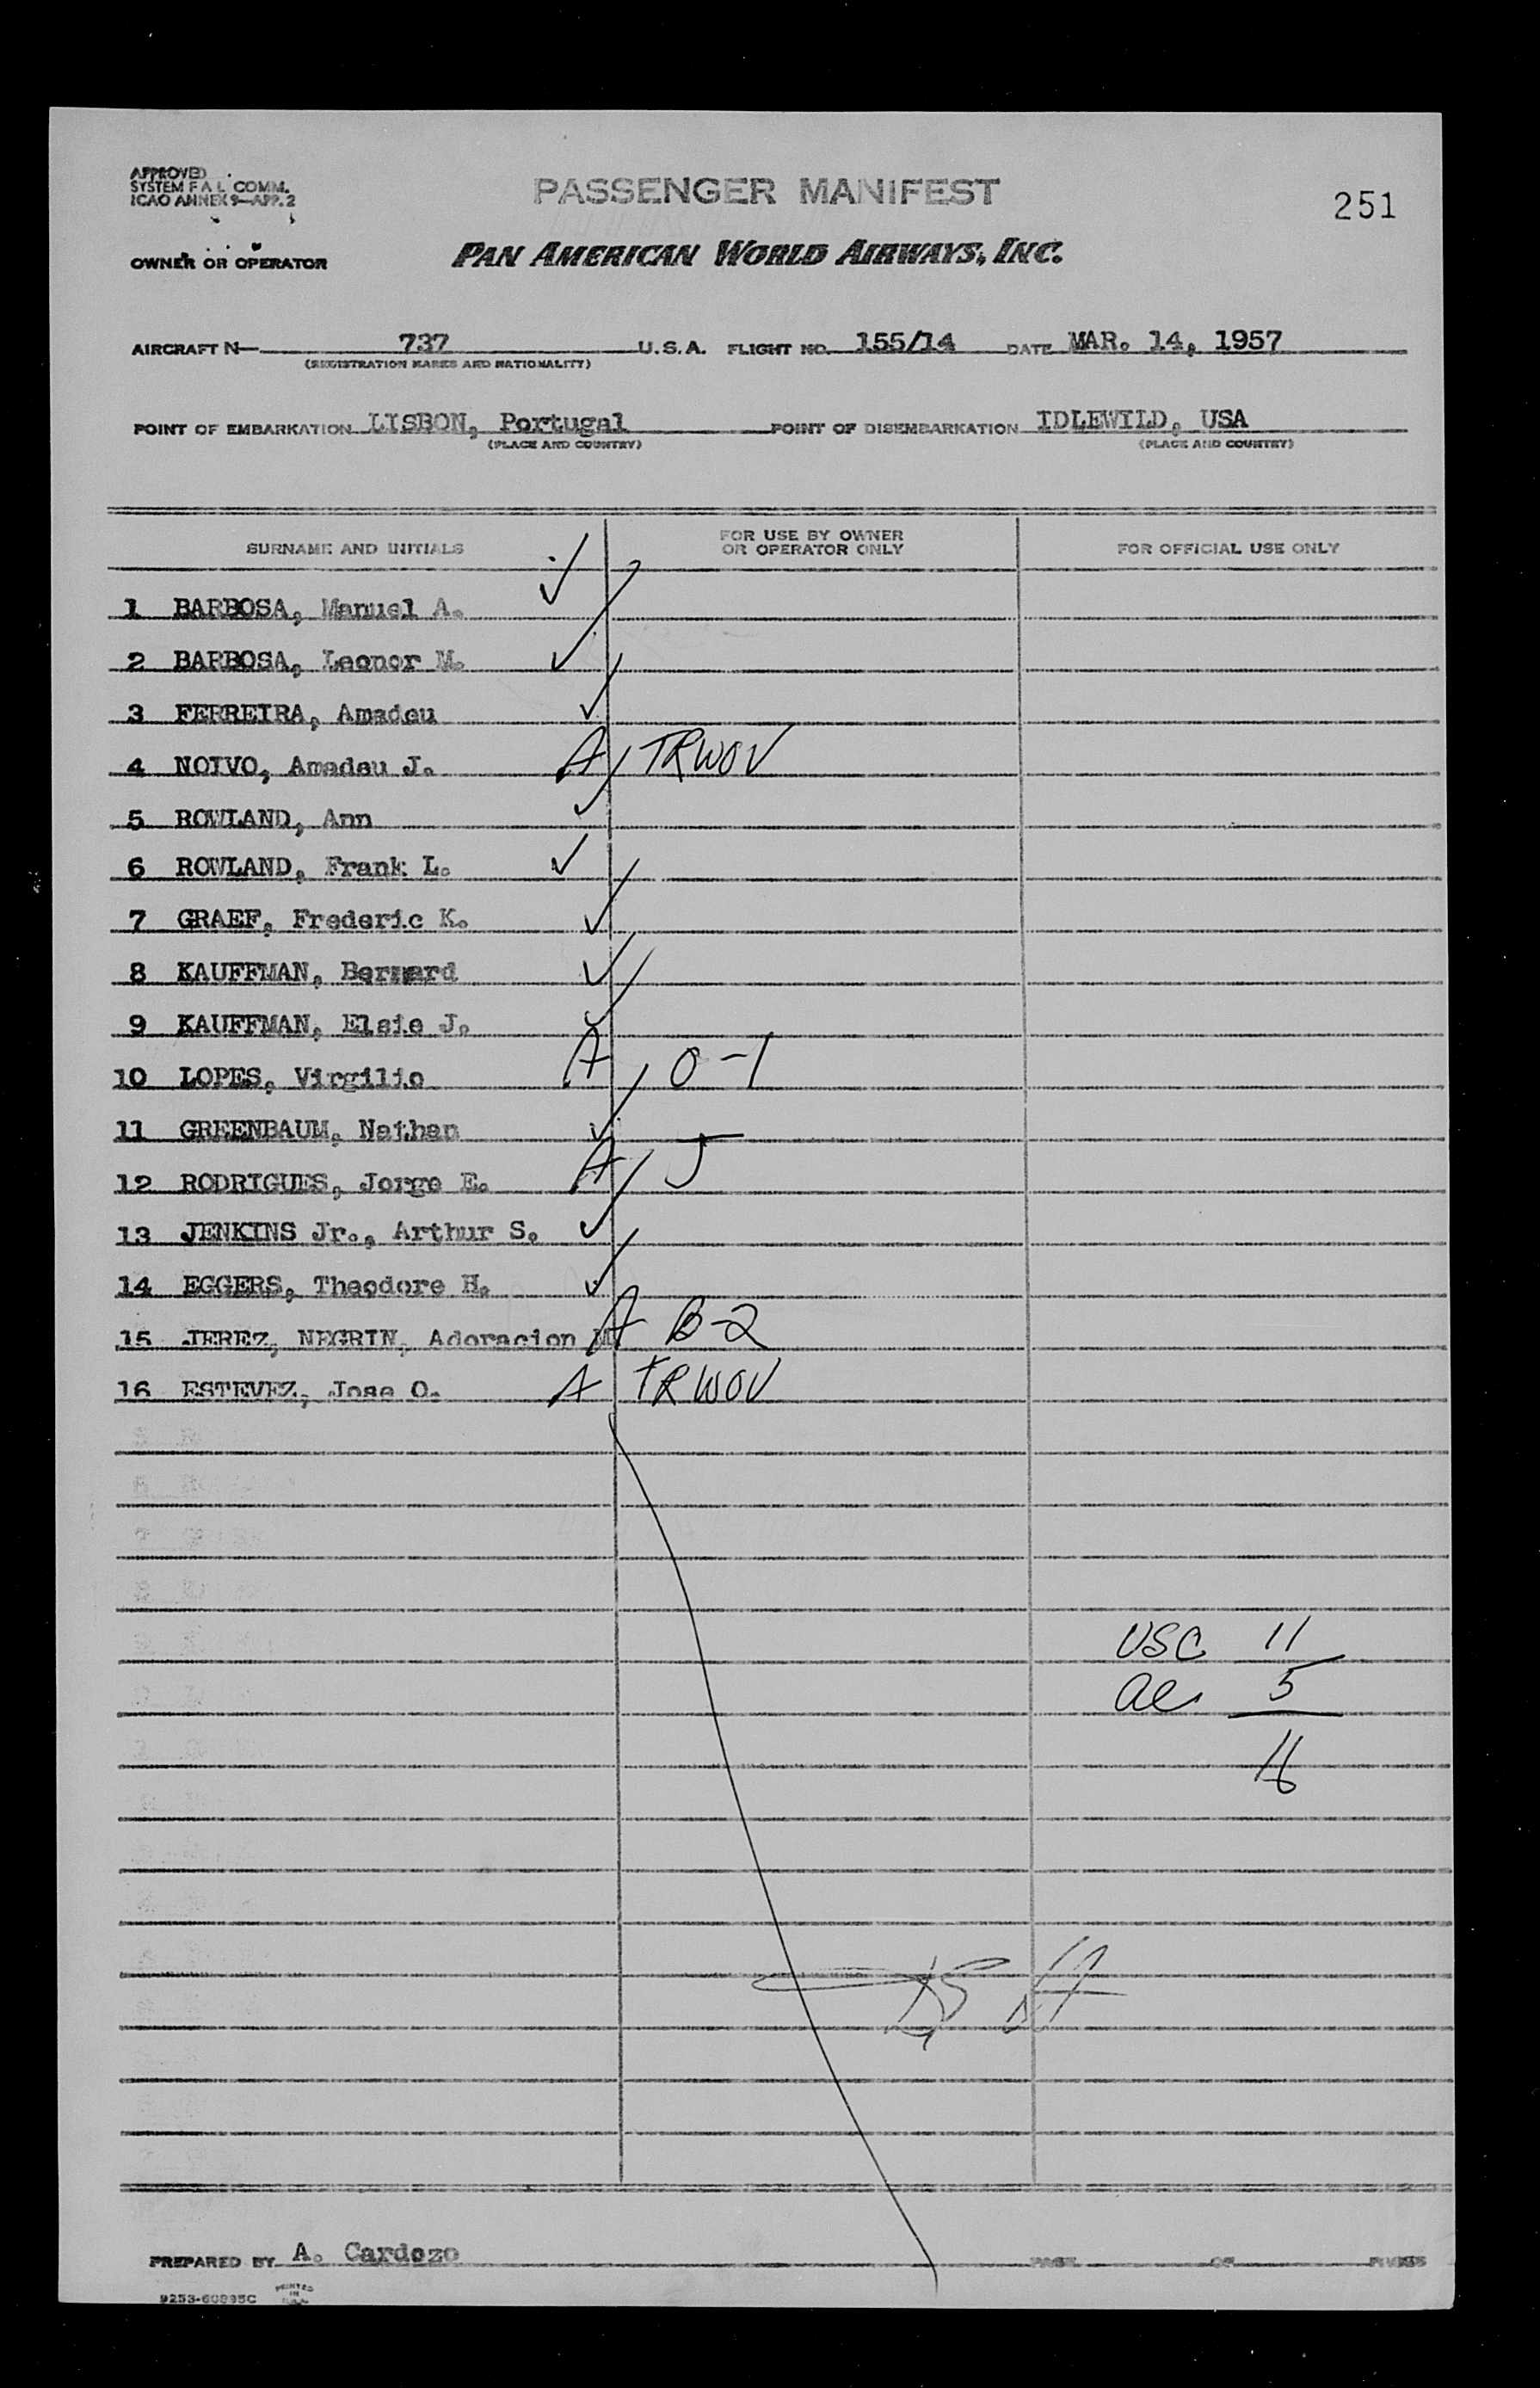 APPROVED
SYSTEM F A L COMM.
ICAO ANNEX 9—APP. 2
PASSENGER MANIFEST
251
OWNER OR OPERATOR
PAN AMERICAN WORLD AIRWAYS, INC.
AIRCRAFT N— 737 U.S.A. FLIGHT NO. 155/14 DATE MAR. 14, 1957
(REGISTRATION MARKS AND NATIONALITY)
POINT OF EMBARKATION LISBON, Portugal POINT OF DISEMBARKATION IDLEWILD, USA
(PLACE AND COUNTRY) (PLACE AND COUNTRY)
SURNAME AND INITIALS FOR USE BY OWNER OR OPERATOR ONLY FOR OFFICIAL USE ONLY
1 BARBOSA, Manuel A. ✓
2 BARBOSA, Leonor M. ✓
3 FERREIRA, Amadeu ✓
4 NOIVO, Amadeu J. A TRWOV
5 ROWLAND, Ann ✓
6 ROWLAND, Frank L. ✓
7 GRAEF, Frederic K. ✓
8 KAUFFMAN, Bernard ✓
9 KAUFFMAN, Elsie J. ✓
10 LOPES, Virgilio A O-1
11 GREENBAUM, Nathan ✓
12 RODRIGUES, Jorge E. A 5
13 JENKINS Jr., Arthur S. ✓
14 EGGERS, Theodore H. ✓
15 JEREZ, NEGRIN, Adoracion M A B-2
16 ESTEVEZ, Jose O. A TRWOV
USC 11
al 5
16
PREPARED BY A. Cardozo PAGE OF PAGES
9253-60995C PRINTED IN U.S.A.